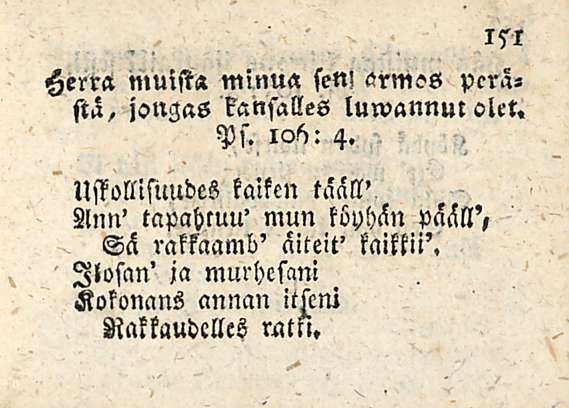 151
Herra muista minua sen armos perä-
stä, jongas kansalles luwannut olet.
Ps. 106: 4.
Uskollisuudes kaiken tääll'
Ann' tapahtuu' mun köyhän pääll',
Sä rakkaamb' äiteit' kaikkii'.
Ilosan' ja murhesani
Kokonans annan itseni
Rakkaudelles ratki.